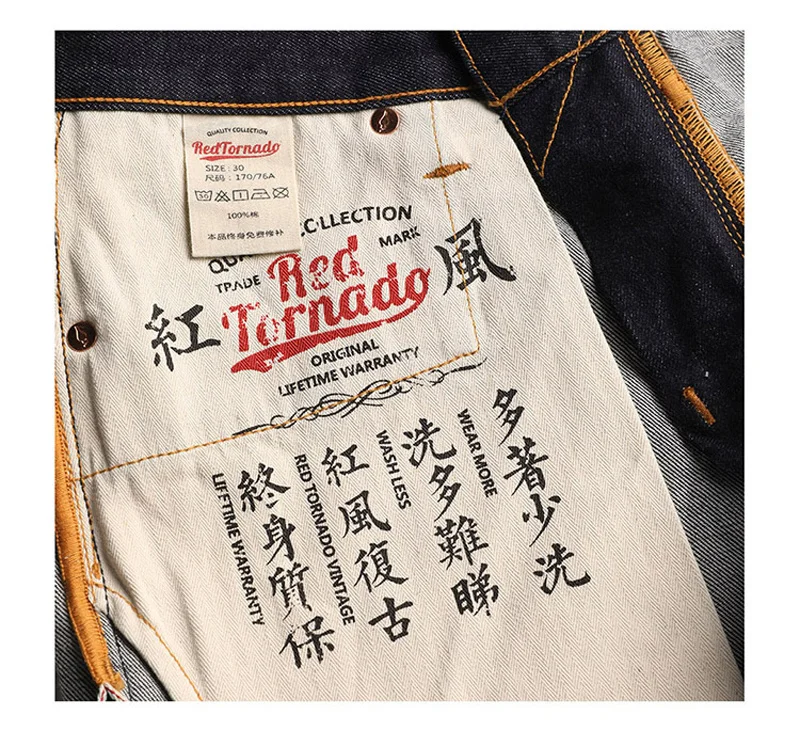 QUALITY COLLECTION
RedTornado
SIZE : 30
尺码 : 170/76A
100%棉
本品终身免费修补
COLLECTION
TRADE
MARK
紅
Red
Tornado
風
ORIGINAL
LIFETIME WARRANTY
多著少洗
WEAR MORE
洗多難睇
WASH LESS
紅風復古
RED TORNADO VINTAGE
終身質保
LIFETIME WARRANTY